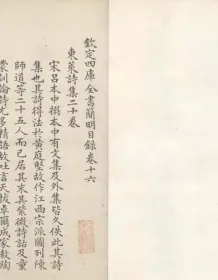 欽定四庫全書簡明目録卷十六
東萊詩集二十卷
宋呂本中撰本中有文集及外集皆久佚此其詩
集也其詩得法於黃庭堅故作江西宗派圖列陳
師道等二十五人而已居其末其紫微詩話及童
蒙訓論詩尤多精語故吐言天拔卓爾成家敖陶